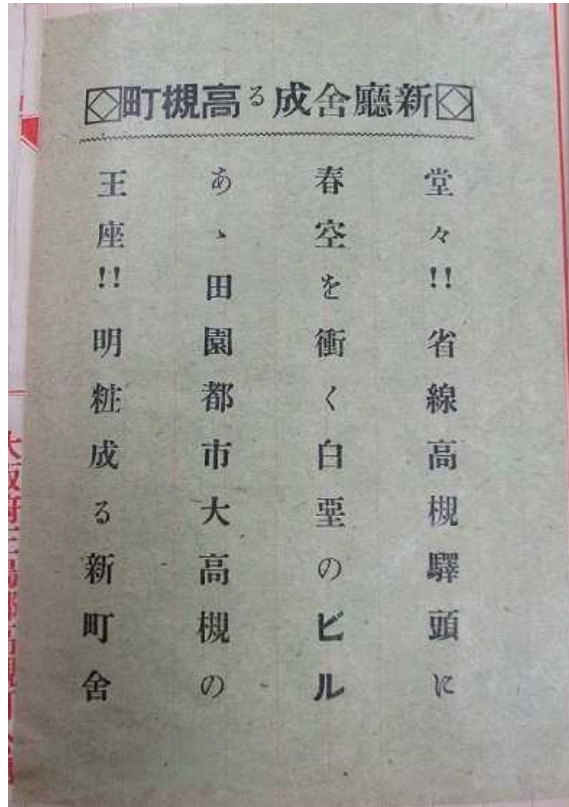 新廳舍成る高槻町
堂々!!省線高槻驛頭に
春空を衝く白堊のビル
あゝ田園都市大高槻の
王座!!明粧成る新町舍